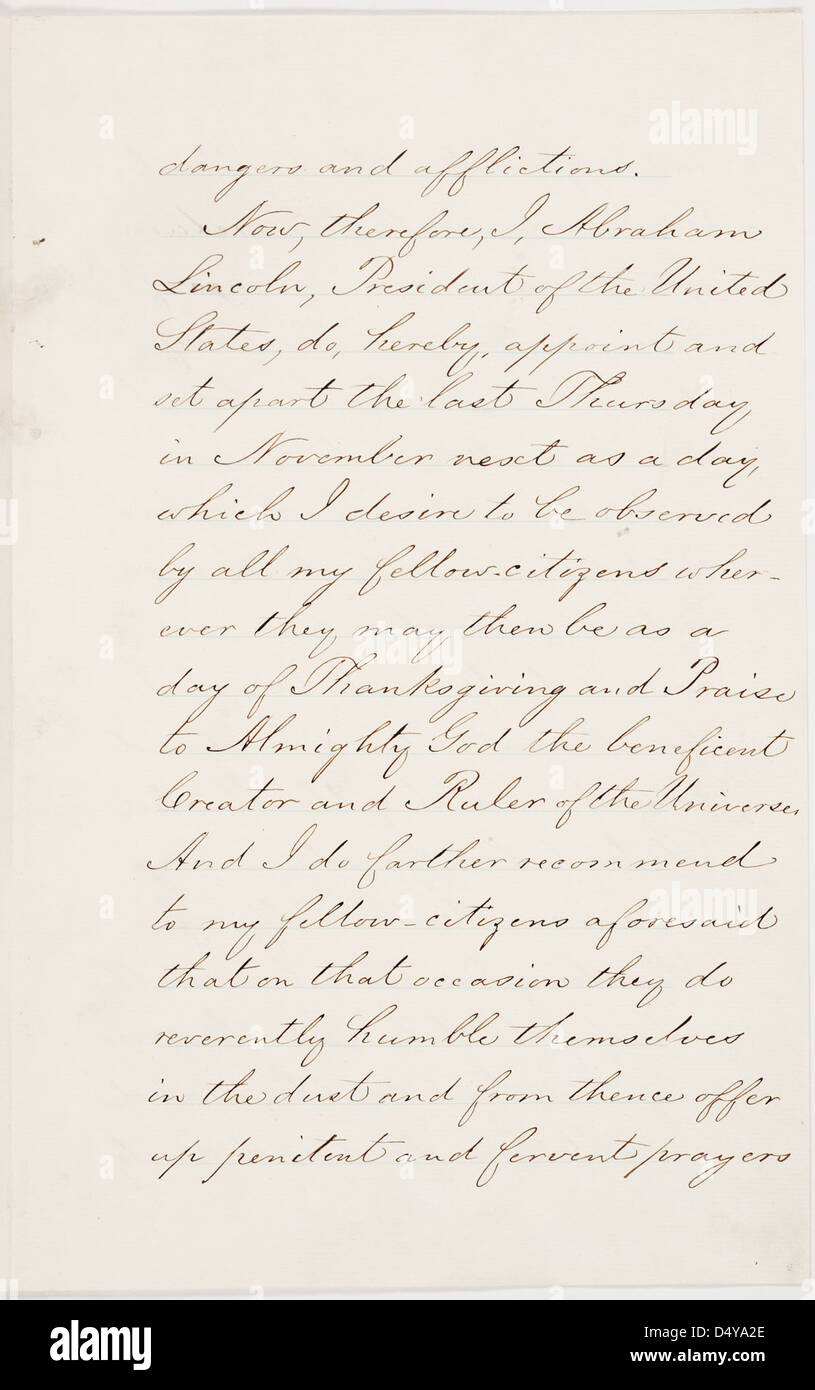 dangers and afflictions.
Now, therefore, I, Abraham
Lincoln, President of the United
States, do, hereby, appoint and
set apart the last Thursday
in November next as a day,
which I desire to be observed
by all my fellow-citizens wher-
ever they may then be as a
day of Thanksgiving and Praise
to Almighty God the beneficent
Creator and Ruler of the Universe.
And I do farther recommend
to my fellow-citizens aforesaid
that on that occasion they do
reverently humble themselves
in the dust and from thence offer
up penitent and fervent prayers
alamy
Image ID: D4YA2E
www.alamy.com